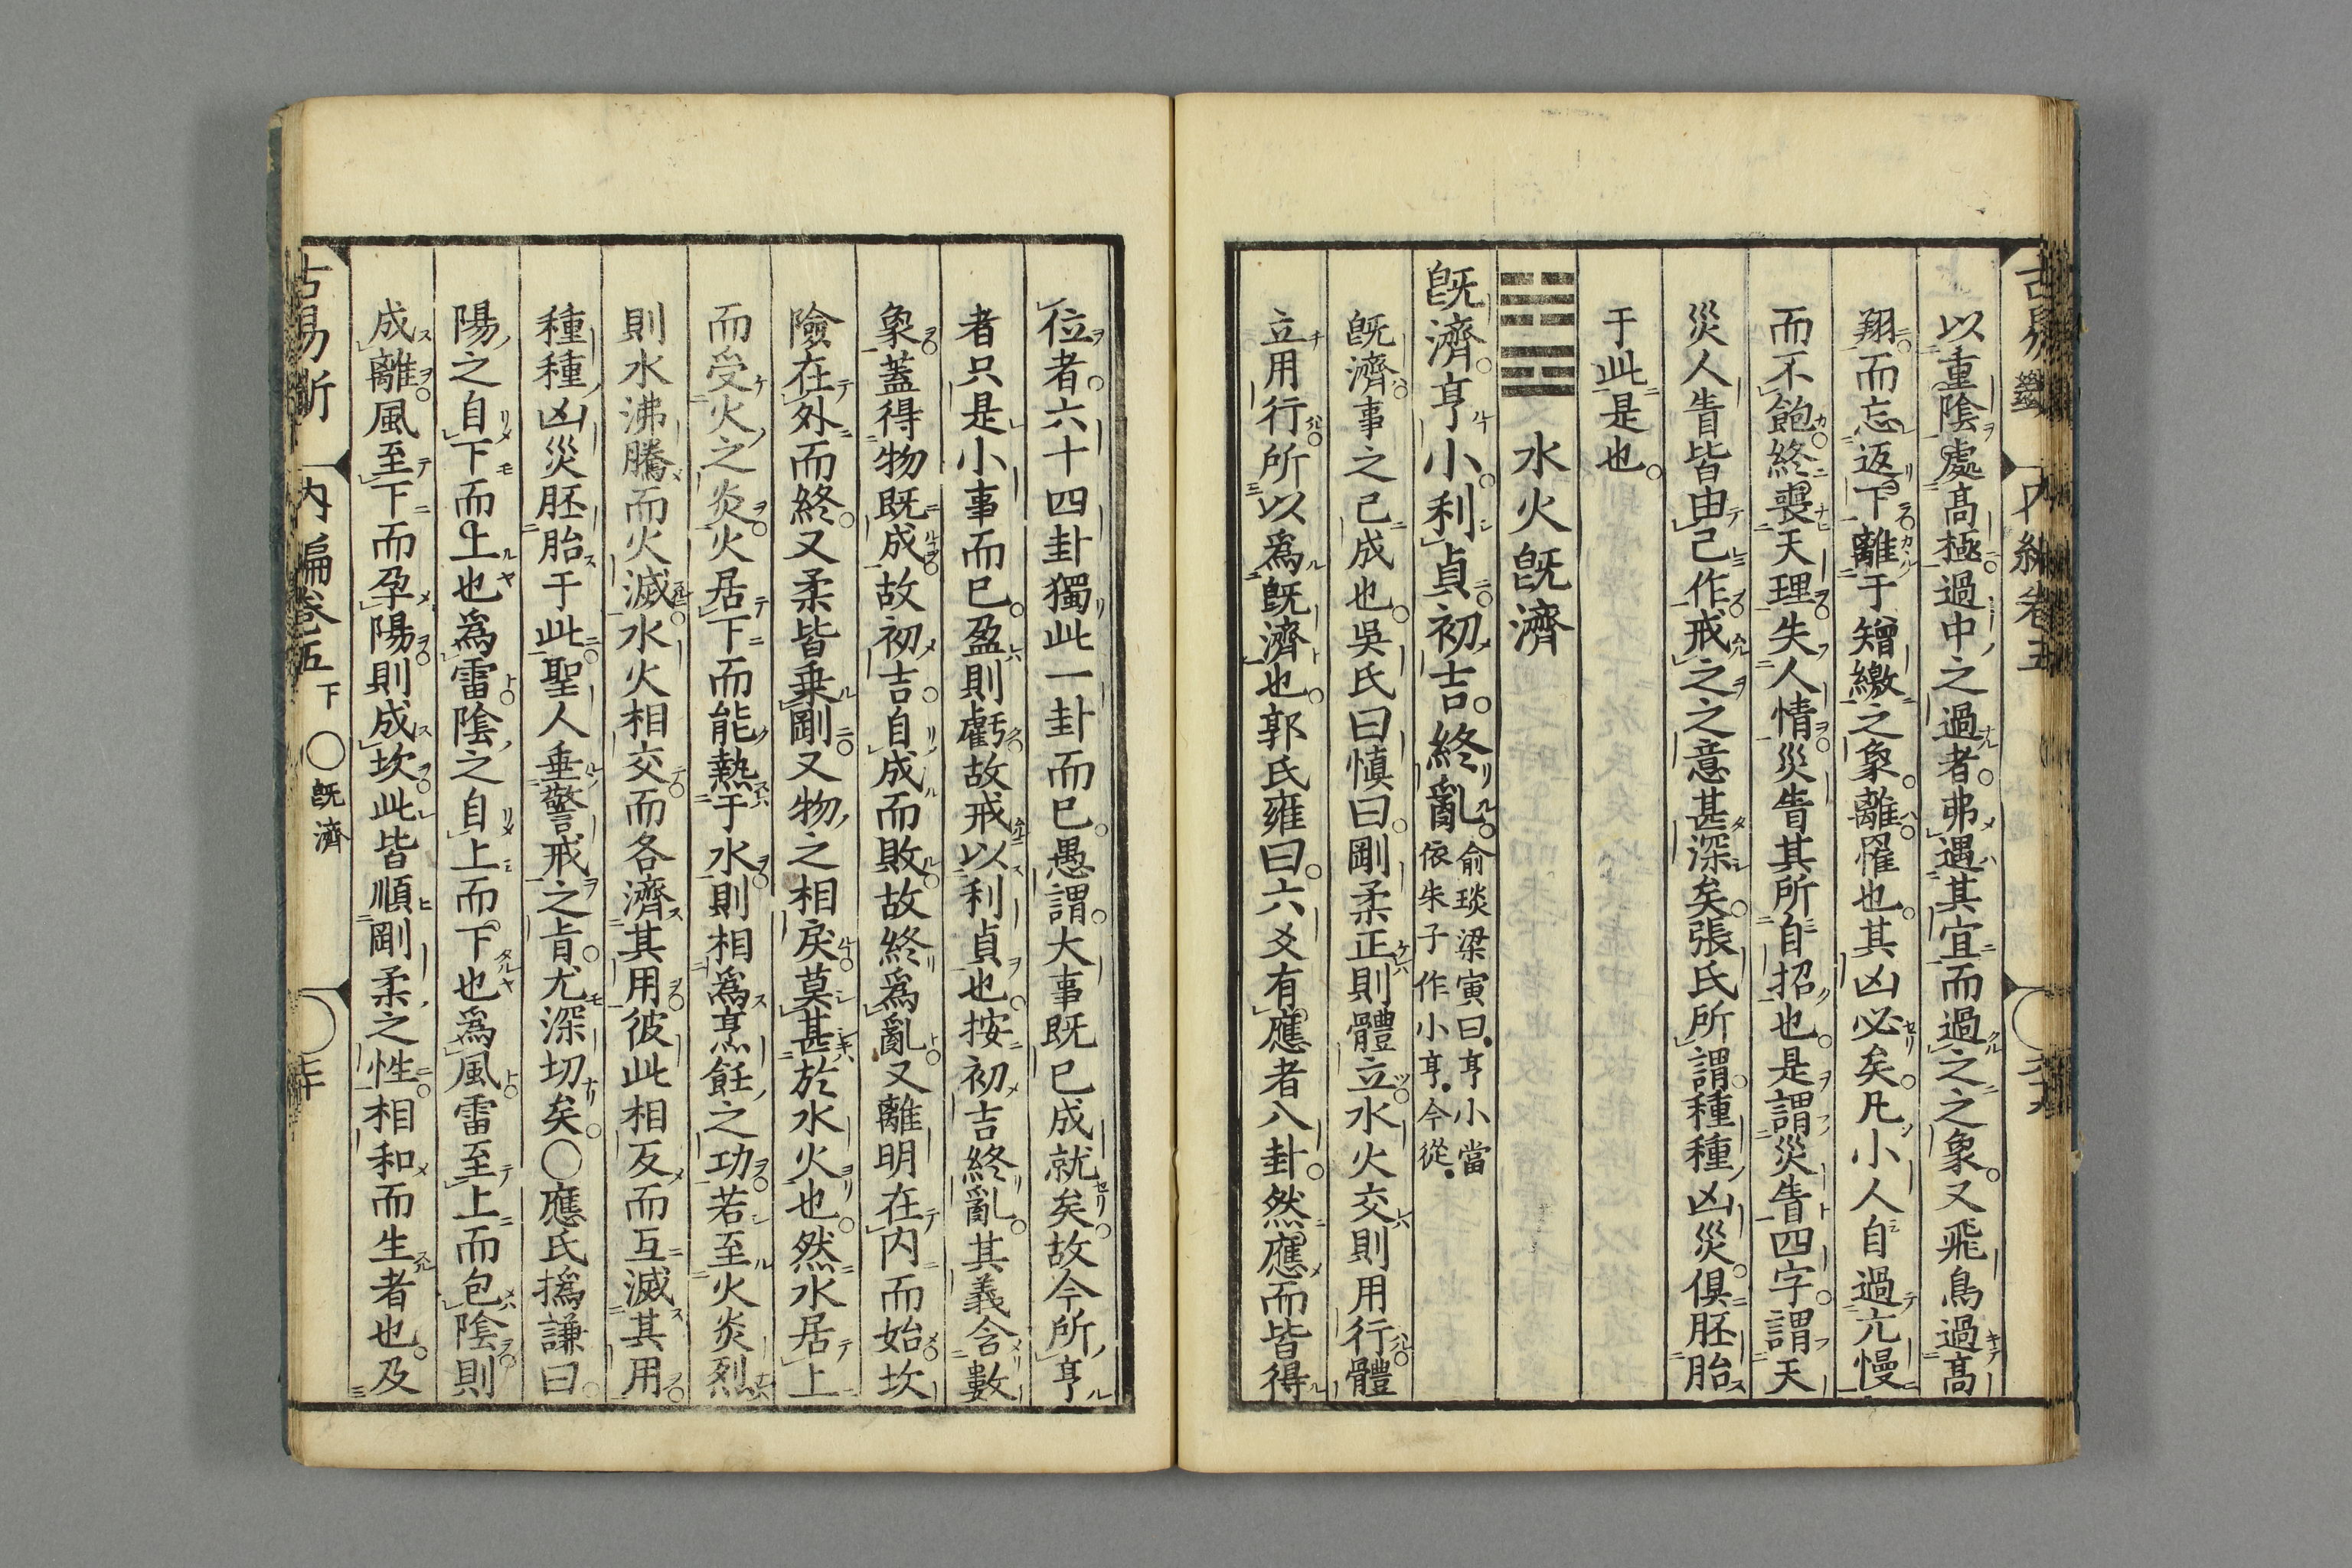 以重陰處高極過中之過者弗遇其宜而過之之象又飛鳥過高
翔而忘返下離于矰繳之象離罹也其凶必矣凡小人自過亢慢
而不飽終喪天理失人情災眚其所自招也是謂災眚四字謂天
災人眚皆由己作戒之之意甚深矣張氏所謂種種凶災俱胚胎
于此是也
水火既濟
既濟亨小利貞初吉終亂
俞琰梁寅曰亨小當
依朱子作小亨今從
既濟事之已成也吳氏曰慎曰剛柔正則體立水火交則用行體
立用行所以為既濟也郭氏雍曰六爻有應者八卦然應而皆得
位者六十四卦獨此一卦而已愚謂大事既已成就矣故今所亨
者只是小事而已盈則虧故戒以利貞也按初吉終亂其義含數
象蓋得物既成故初吉自成而敗故終為亂又離明在内而始坎
險在外而終又柔皆乗剛又物之相戾莫甚於水火也然水居上
而受火之炎火居下而能熱于水則相為烹飪之功若至火炎烈
則水沸騰而火滅水火相交而各濟其用彼此相反而互滅其用
種種凶災胚胎于此聖人垂警戒之旨尤深切矣○應氏撝謙曰
陽之自下而上也為雷陰之自上而下也為風雷至上而包陰則
成離風至下而孕陽則成坎此皆順剛柔之性相和而生者也及
古易斷
内編卷五 下 ○既濟